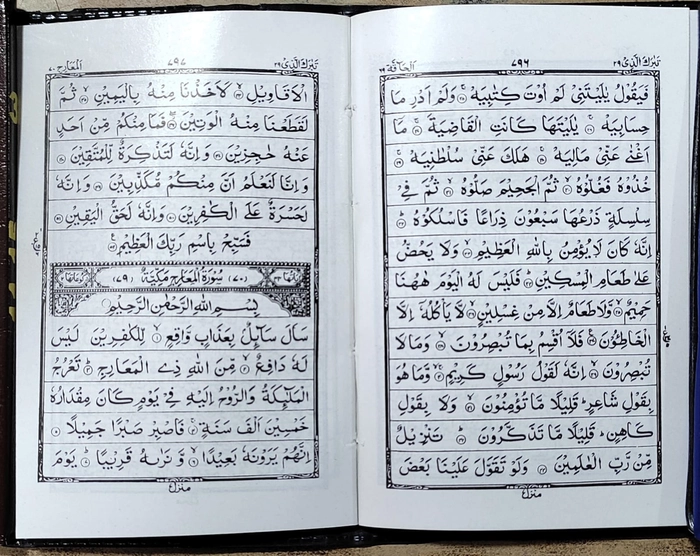 تبرك الذي ٢٩
٧٩٦
الحآقة ٦٩
فَيَقُوْلُ يٰلَيْتَنِيْ لَمْ اُوْتَ كِتٰبِيَهْ ۚ وَلَمْ اَدْرِ مَا
حِسَابِيَهْ ۚ يٰلَيْتَهَا كَانَتِ الْقَاضِيَةَ ۚ مَآ
اَغْنٰى عَنِّيْ مَالِيَهْ ۚ هَلَكَ عَنِّيْ سُلْطٰنِيَهْ ۚ
خُذُوْهُ فَغُلُّوْهُ ۙ ثُمَّ الْجَحِيْمَ صَلُّوْهُ ۙ ثُمَّ فِيْ
سِلْسِلَةٍ ذَرْعُهَا سَبْعُوْنَ ذِرَاعًا فَاسْلُكُوْهُ ؕ
اِنَّهٗ كَانَ لَا يُؤْمِنُ بِاللّٰهِ الْعَظِيْمِ ۙ وَلَا يَحُضُّ
عَلٰى طَعَامِ الْمِسْكِيْنِ ؕ فَلَيْسَ لَهُ الْيَوْمَ هٰهُنَا
حَمِيْمٌ ۙ وَّلَا طَعَامٌ اِلَّا مِنْ غِسْلِيْنٍ ۙ لَّا يَاْكُلُهٗٓ اِلَّا
الْخَاطِـُٔوْنَ ۧ فَلَآ اُقْسِمُ بِمَا تُبْصِرُوْنَ ۙ وَمَا لَا
تُبْصِرُوْنَ ۙ اِنَّهٗ لَقَوْلُ رَسُوْلٍ كَرِيْمٍ ۙ وَّمَا هُوَ
بِقَوْلِ شَاعِرٍ ؕ قَلِيْلًا مَّا تُؤْمِنُوْنَ ۙ وَلَا بِقَوْلِ
كَاهِنٍ ؕ قَلِيْلًا مَّا تَذَكَّرُوْنَ ؕ تَنْزِيْلٌ
مِّنْ رَّبِّ الْعٰلَمِيْنَ ۝ وَلَوْ تَقَوَّلَ عَلَيْنَا بَعْضَ
منزل
تبرك الذي ٢٩
٧٩٧
المعارج ٧٠
الْاَقَاوِيْلِ ۙ لَاَخَذْنَا مِنْهُ بِالْيَمِيْنِ ۙ ثُمَّ
لَقَطَعْنَا مِنْهُ الْوَتِيْنَ ۖ فَمَا مِنْكُمْ مِّنْ اَحَدٍ
عَنْهُ حٰجِزِيْنَ ۝ وَاِنَّهٗ لَتَذْكِرَةٌ لِّلْمُتَّقِيْنَ ۝
وَاِنَّا لَنَعْلَمُ اَنَّ مِنْكُمْ مُّكَذِّبِيْنَ ۝ وَاِنَّهٗ
لَحَسْرَةٌ عَلَى الْكٰفِرِيْنَ ۝ وَاِنَّهٗ لَحَقُّ الْيَقِيْنِ ۝
فَسَبِّحْ بِاسْمِ رَبِّكَ الْعَظِيْمِ ۧ
(٧٠) سُوْرَةُ الْمَعَارِجِ مَكِّيَّةٌ (٧٩)
بِسْمِ اللّٰهِ الرَّحْمٰنِ الرَّحِيْمِ
سَاَلَ سَآئِلٌۢ بِعَذَابٍ وَّاقِعٍ ۙ لِّلْكٰفِرِيْنَ لَيْسَ
لَهٗ دَافِعٌ ۙ مِّنَ اللّٰهِ ذِي الْمَعَارِجِ ؕ تَعْرُجُ
الْمَلٰٓئِكَةُ وَالرُّوْحُ اِلَيْهِ فِيْ يَوْمٍ كَانَ مِقْدَارُهٗ
خَمْسِيْنَ اَلْفَ سَنَةٍ ۚ فَاصْبِرْ صَبْرًا جَمِيْلًا ۝
اِنَّهُمْ يَرَوْنَهٗ بَعِيْدًا ۙ وَّنَرٰىهُ قَرِيْبًا ؕ يَوْمَ
منزل